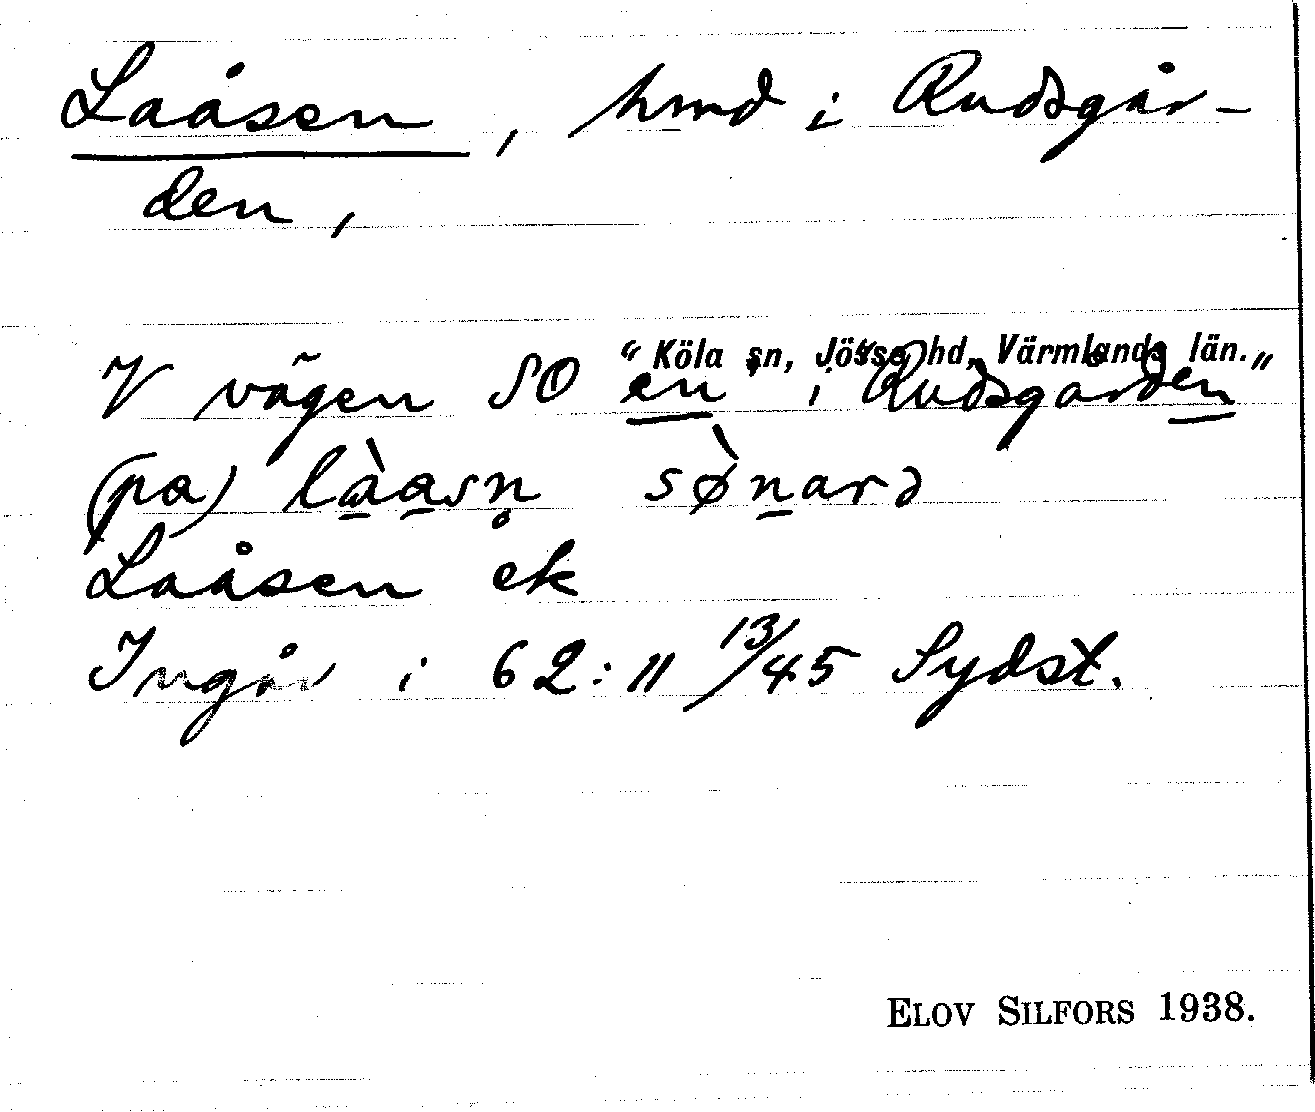 Laåsen, hmd i Rudsgår-
den,
Köla sn, Jösse hd, Värmlands län.
V vägen SO "en" i Rudsgården"
(pa) làasn̥ sø̀narə
Laåsen ek
Ingår i 62:11 13/45 Sydst.
ELOV SILFORS 1938.